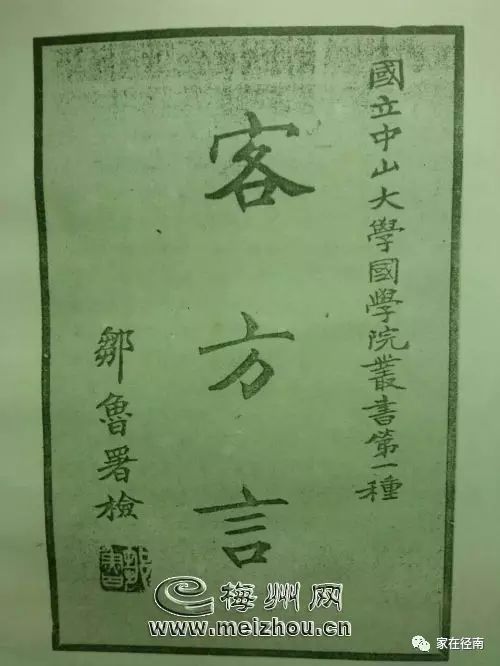 國立中山大學國學院叢書第一種
客方言
鄒魯署檢
梅州网
www.meizhou.cn
家在径南